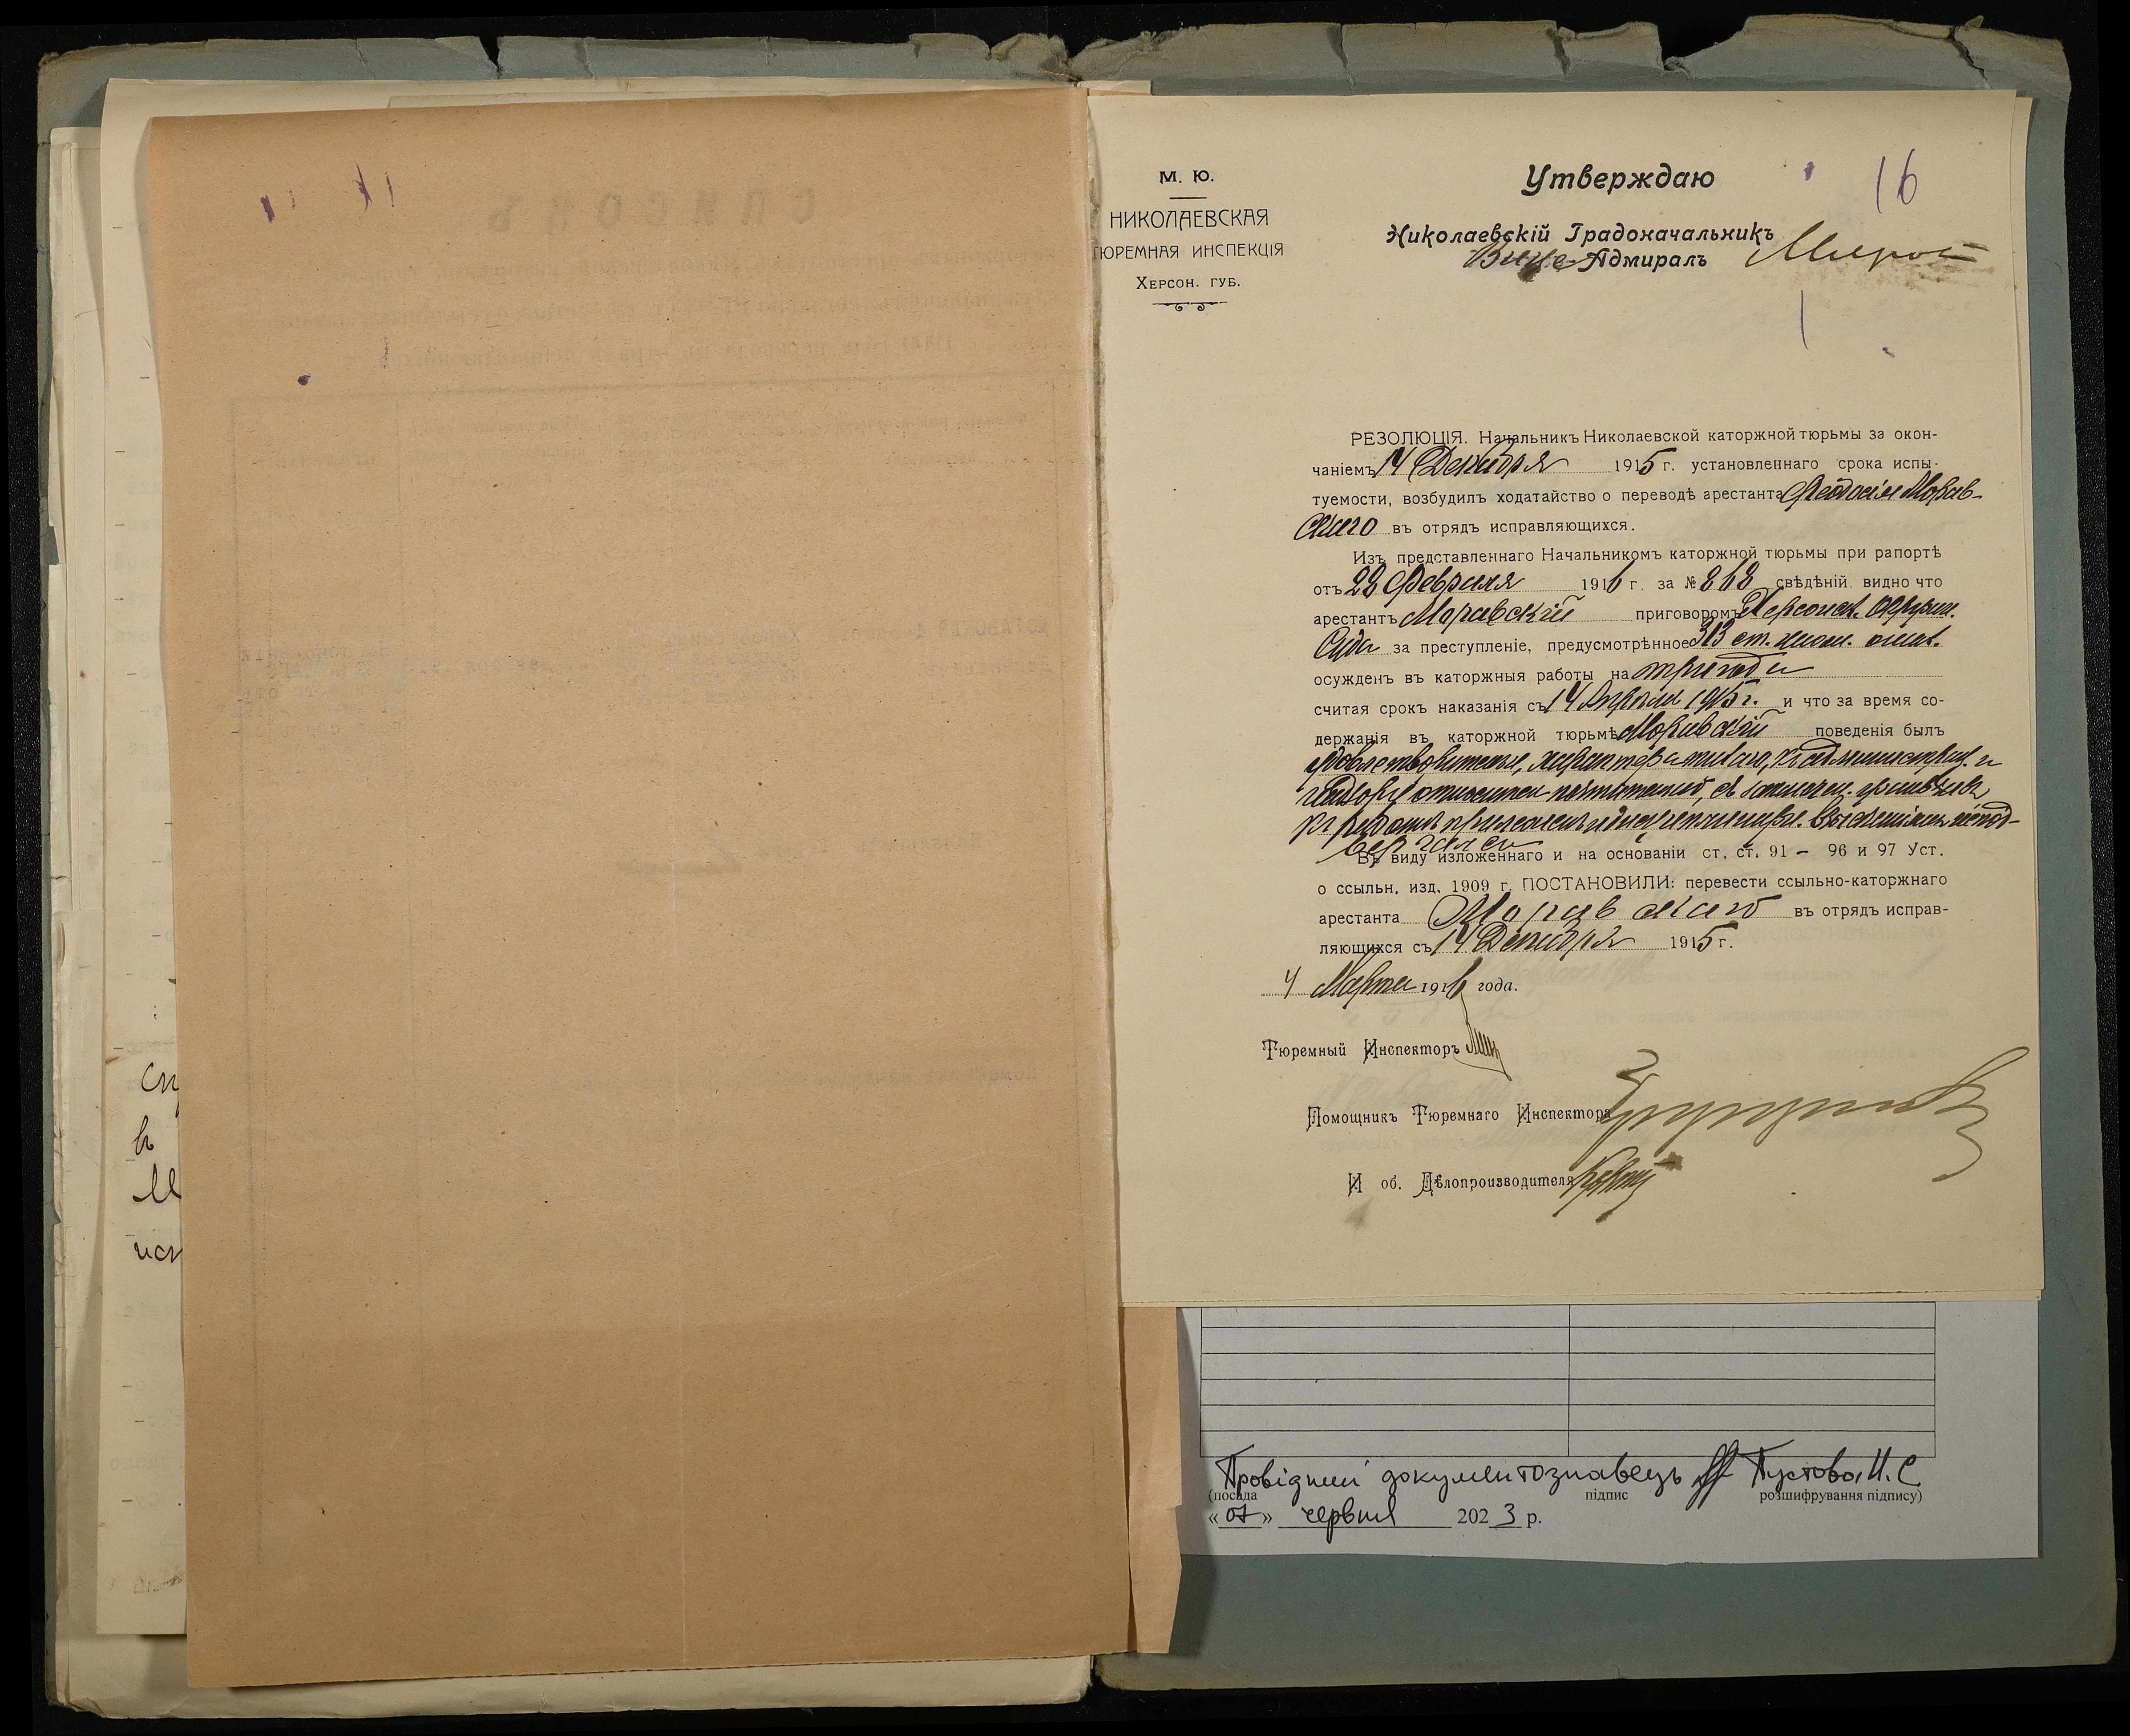 сп
в
М
исп
16
М. Ю.
НИКОЛАЕВСКАЯ
ТЮРЕМНАЯ ИНСПЕКЦІЯ
ХЕРСОН. ГУБ.
Утверждаю
Николаевскій Градоначальникъ
Вице-Адмиралъ
РЕЗОЛЮЦІЯ. Начальникъ Николаевской каторжной тюрьмы за окон-
чаніемъ 14 Декабря 1915 г. установленнаго срока испы-
туемости, возбудилъ ходатайство о переводѣ арестанта Феодосія Морав-
скаго въ отрядъ исправляющихся.
Изъ представленнаго Начальникомъ каторжной тюрьмы при рапортѣ
отъ 28 Февраля 1916 г. за № 868 свѣдѣній видно что
арестантъ Моравскій приговоромъ Херсонск. Окружн.
Суда за преступленіе, предусмотрѣнное 313 ст.
осужденъ въ каторжныя работы на три года
считая срокъ наказанія съ 14 Апрѣля 1915 г. и что за время со-
держанія въ каторжной тюрьмѣ Моравскій поведенія былъ
удовлетворительн, характера тихаго, къ администрац. и
надзору относится
къ работѣ прилеженъ взысканіямъ не под-
вергался
Въ виду изложеннаго и на основаніи ст. ст. 91 – 96 и 97 Уст.
о ссыльн. изд. 1909 г. ПОСТАНОВИЛИ: перевести ссыльно-каторжнаго
арестанта Моравскаго въ отрядъ исправ-
ляющихся съ 14 Декабря 1915 г.
4 Марта 1916 года.
Тюремный Инспекторъ
Помощникъ Тюремнаго Инспектора
И об. Дѣлопроизводителя
Провідний документознавець Пустова Н. С
(посада підпис розшифрування підпису)
« 07 » червня 2023 р.